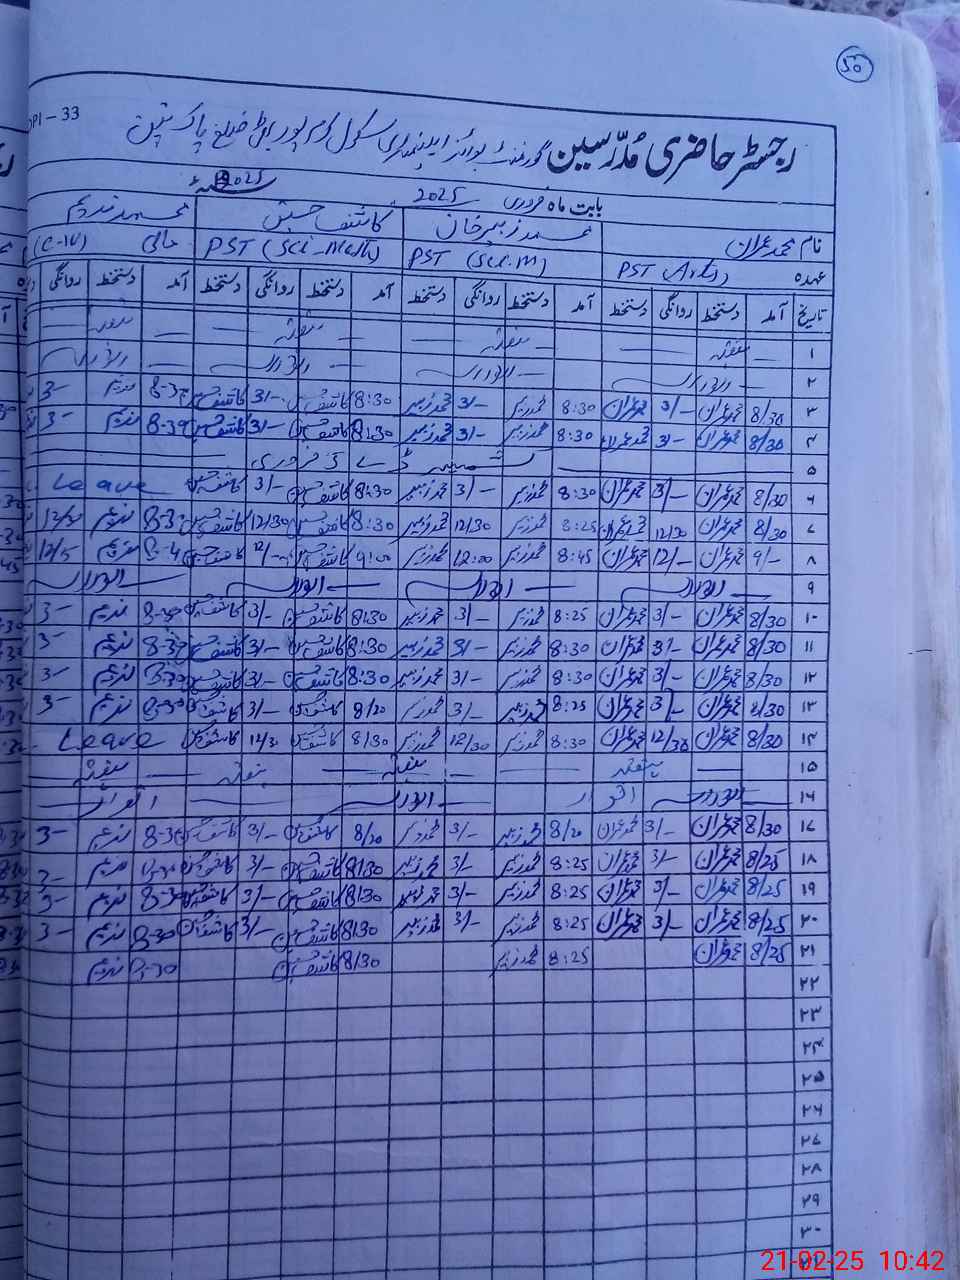 50
DPI-33
رجسٹر حاضری مُدرّسین گورنمنٹ بوائز ایلیمنٹری سکول کرم پور ضلع پاک پتن
بابت ماہ فروری 2025 2025
نام محمد عمران محمد زبیر خان کاشف حسین محمد ندیم
عہدہ PST (Arts) PST (Sci.m) PST (Sci-Math) مالی (C-IV)
تاریخ آمد دستخط روانگی دستخط آمد دستخط روانگی دستخط آمد دستخط روانگی دستخط آمد دستخط روانگی
۱ ہفتہ ہفتہ ہفتہ ہفتہ
۲ اتوار اتوار اتوار اتوار
۳ 8/30 محمد عمران 3/- محمد عمران 8:30 محمد زبیر 3/- محمد زبیر 8:30 کاشف حسین 3/- کاشف حسین 8-30 ندیم 3-
۴ 8/30 محمد عمران 3/- محمد عمران 8:30 محمد زبیر 3/- محمد زبیر 8:30 کاشف حسین 3/- کاشف حسین 8-30 ندیم 3-
۵ کشمیر ڈے فروری
۶ 8/30 محمد عمران 3/- محمد عمران 8:30 محمد زبیر 3/- محمد زبیر 8:30 کاشف حسین 3/- کاشف حسین Leave
۷ 8/30 محمد عمران 12/30 محمد عمران 8:25 محمد زبیر 12/30 محمد زبیر 8:30 کاشف حسین 12/30 کاشف حسین 8-30 ندیم 12/30
۸ 9/- محمد عمران 12/- محمد عمران 8:45 محمد زبیر 12:00 محمد زبیر 9:00 کاشف حسین 12/- کاشف حسین ندیم 12/5
۹ اتوار اتوار اتوار اتوار
۱۰ 8/30 محمد عمران 3/- محمد عمران 8:25 محمد زبیر 3/- محمد زبیر 8:30 کاشف حسین 3/- کاشف حسین 8-30 ندیم 3-
۱۱ 8/30 محمد عمران 3/- محمد عمران 8:30 محمد زبیر 3/- محمد زبیر 8:30 کاشف حسین 3/- کاشف حسین 8-30 ندیم 3-
۱۲ 8/30 محمد عمران 3/- محمد عمران 8:30 محمد زبیر 3/- محمد زبیر 8:30 کاشف حسین 3/- کاشف حسین 8-30 ندیم 3-
۱۳ 8/30 محمد عمران 3/- محمد عمران 8:25 محمد زبیر 3/- محمد زبیر 8/20 کاشف حسین 3/- کاشف حسین 8-30 ندیم 3-
۱۴ 8/30 محمد عمران 12/30 محمد عمران 8:30 محمد زبیر 12/30 محمد زبیر 8/30 کاشف حسین 12/30 کاشف حسین Leave
۱۵ ہفتہ ہفتہ ہفتہ ہفتہ
۱۶ اتوار اتوار اتوار اتوار
۱۷ 8/30 محمد عمران 3/- محمد عمران 8/20 محمد زبیر 3/- محمد زبیر 8/20 کاشف حسین 3/- کاشف حسین 8-30 ندیم 3-
۱۸ 8/25 محمد عمران 3/- محمد عمران 8:25 محمد زبیر 3/- محمد زبیر 8/30 کاشف حسین 3/- کاشف حسین 8-30 ندیم 3-
۱۹ 8/25 محمد عمران 3/- محمد عمران 8:25 محمد زبیر 3/- محمد زبیر 8/30 کاشف حسین 3/- کاشف حسین 8-30 ندیم 3-
۲۰ 8/25 محمد عمران 3/- محمد عمران 8:25 محمد زبیر 3/- محمد زبیر 8/30 کاشف حسین 3/- کاشف حسین 8-30 ندیم 3-
۲۱ 8/25 محمد عمران 8:25 محمد زبیر 8/30 کاشف حسین 8-30 ندیم
۲۲
۲۳
۲۴
۲۵
۲۶
۲۷
۲۸
۲۹
۳۰
21-02-25 10:42